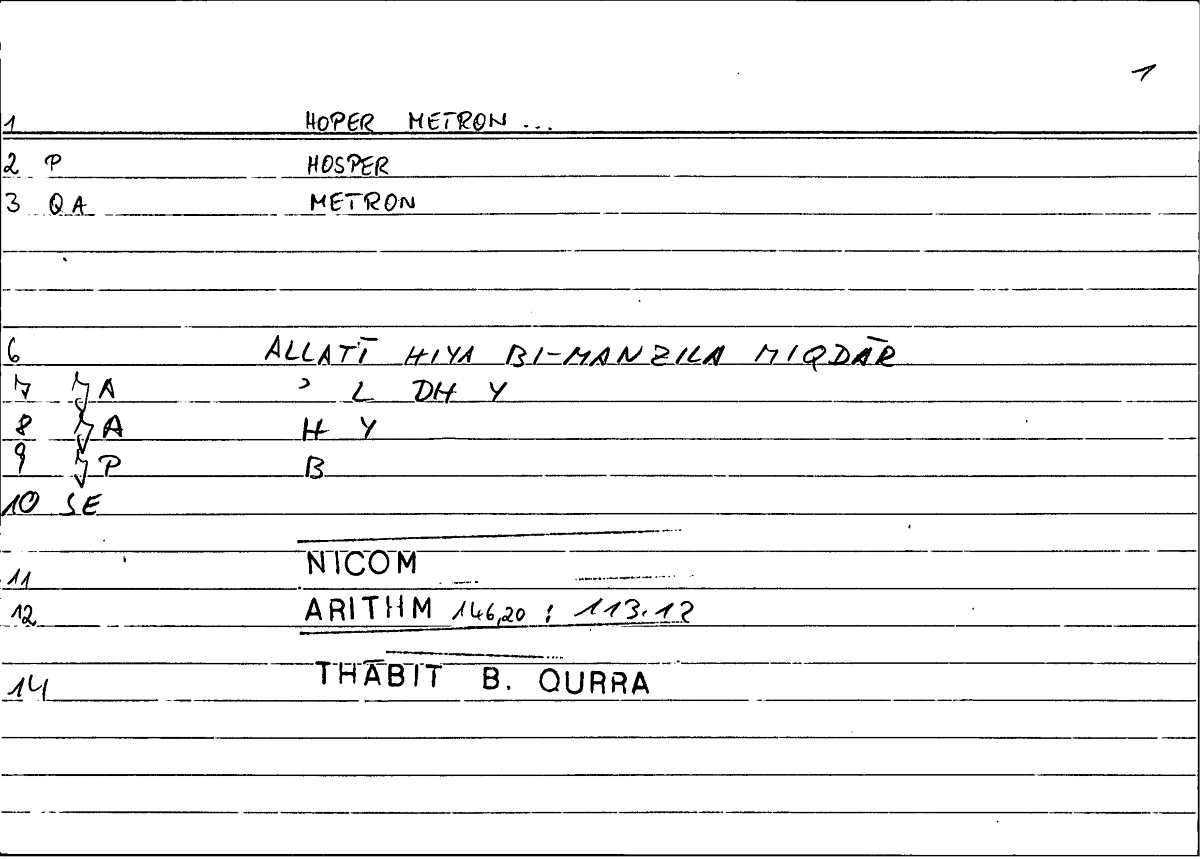 1
1 HOPER METRON ...
2 P HOSPER
3 QA METRON
6 ALLATĪ HIYA BI-MANZILA MIQDĀR
7 A ʾ L DH Y
8 A H Y
9 P B
10 SE
11 NICOM
12 ARITHM 146,20 : 113.12
14 THĀBIT B. QURRA